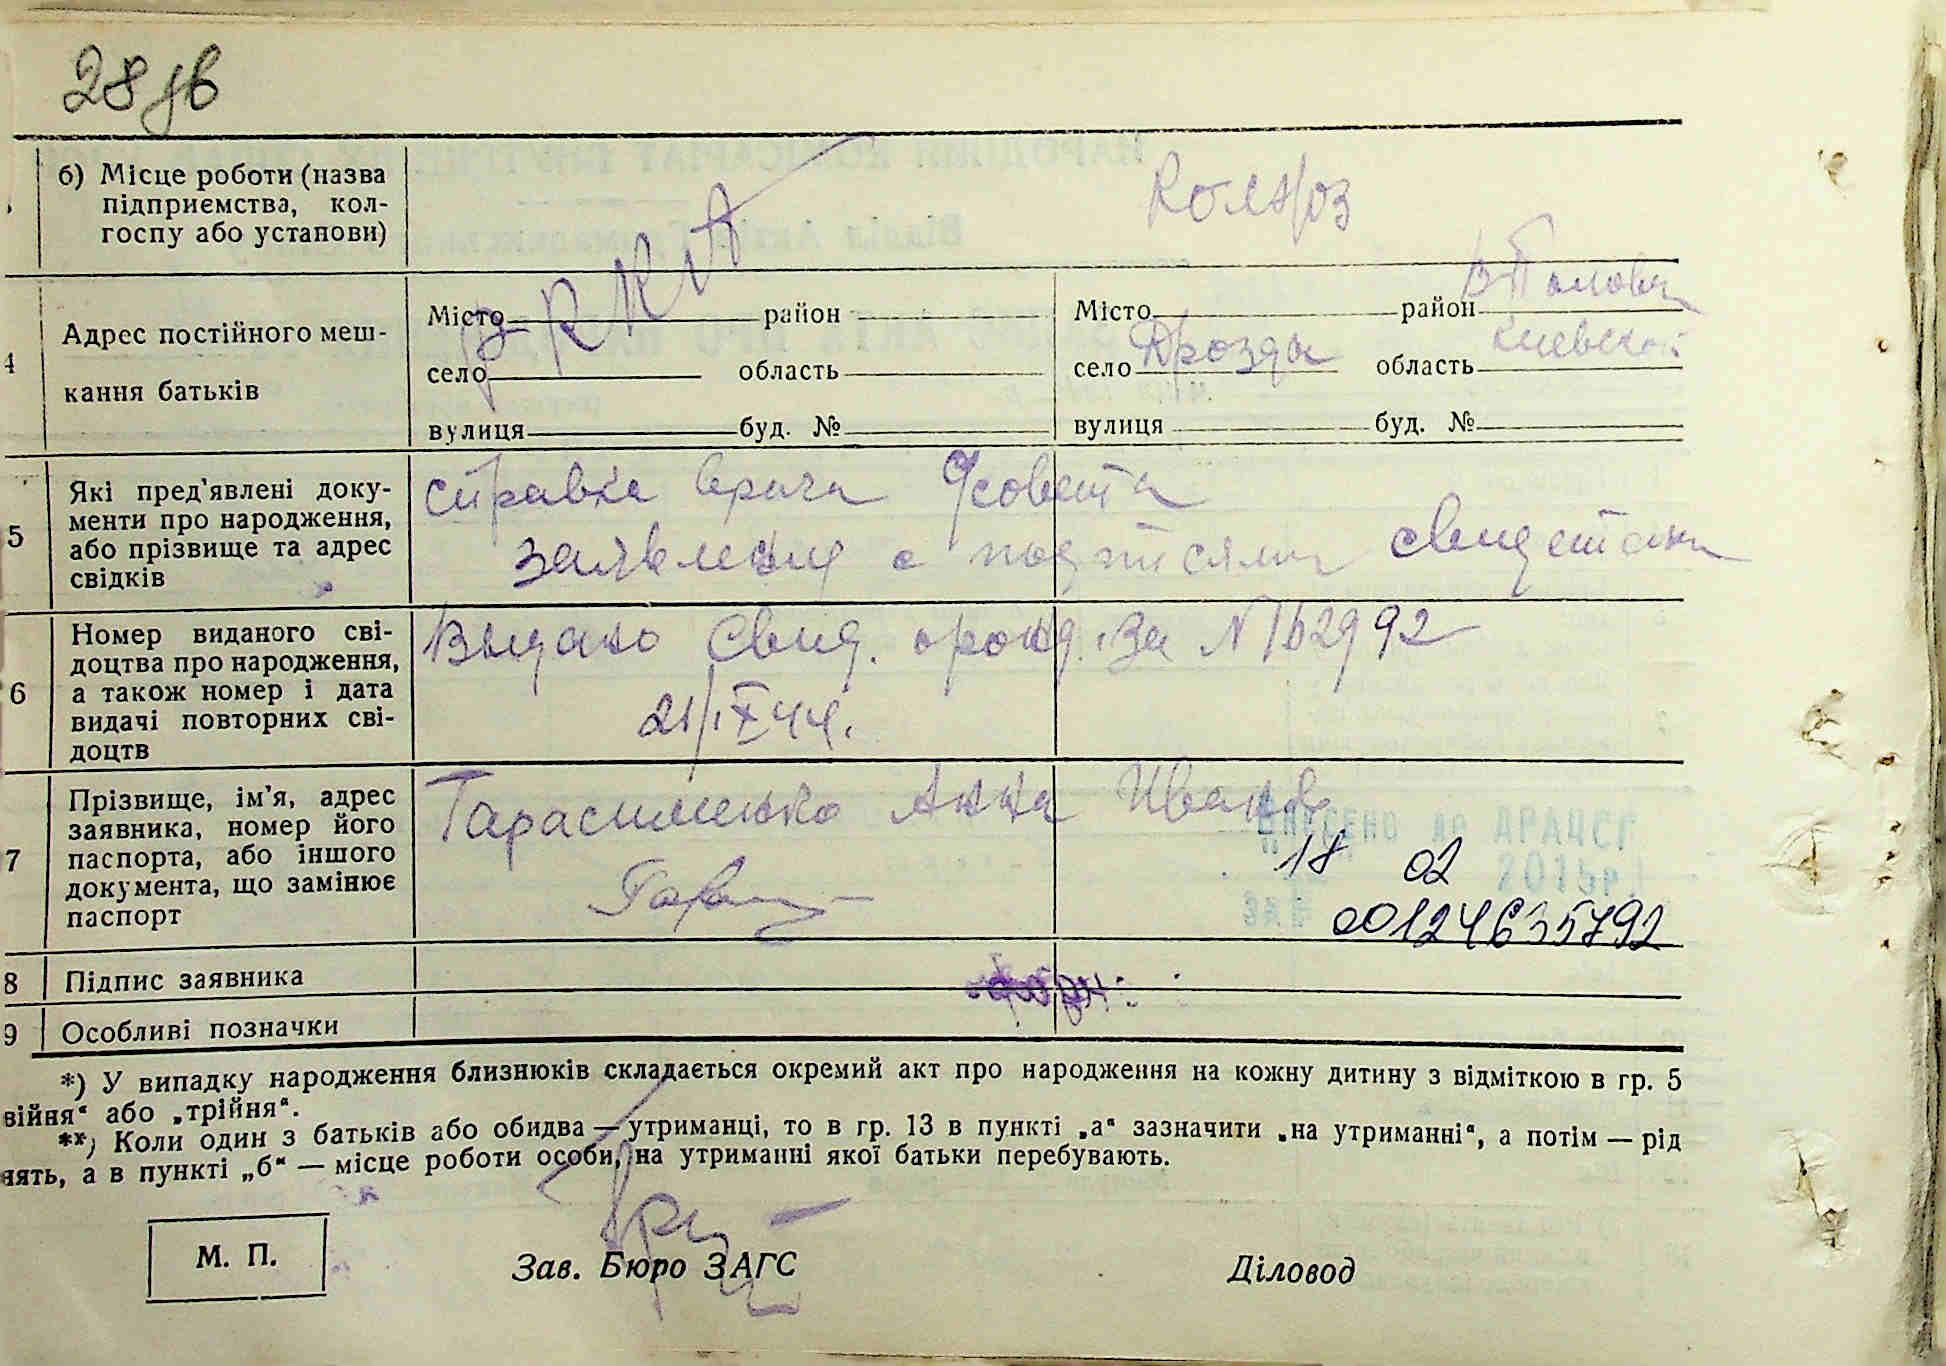 28 зв
б) Місце роботи (назва
підприємства, кол-
госпу або установи)
Колхоз
в РККА
4
Адрес постійного меш-
кання батьків
Місто район
село область
вулиця буд. №
Місто район В Полова
село Дрозды область Киевской
вулиця буд. №
5
Які пред'явлені доку-
менти про народження,
або прізвище та адрес
свідків
справка врача
заявления с подписями
6
Номер виданого сві-
доцтва про народження,
а також номер і дата
видачі повторних сві-
доцтв
Выдано Свид. о рожд. за №
21/IX 44.
7
Прізвище, ім'я, адрес
заявника, номер його
паспорта, або іншого
документа, що замінює
паспорт
Тарасименко Анна Иванов
ВНЕСЕНО до ДРАЦСГ
18 02 2015р.
00124635792
8 Підпис заявника
9 Особливі позначки
*) У випадку народження близнюків складається окремий акт про народження на кожну дитину з відміткою в гр. 5
війня“ або „трійня“.
**) Коли один з батьків або обидва — утриманці, то в гр. 13 в пункті „а“ зазначити „на утриманні“, а потім — рід
нять, а в пункті „б“ — місце роботи особи, на утриманні якої батьки перебувають.
М. П.
Зав. Бюро ЗАГС
Діловод